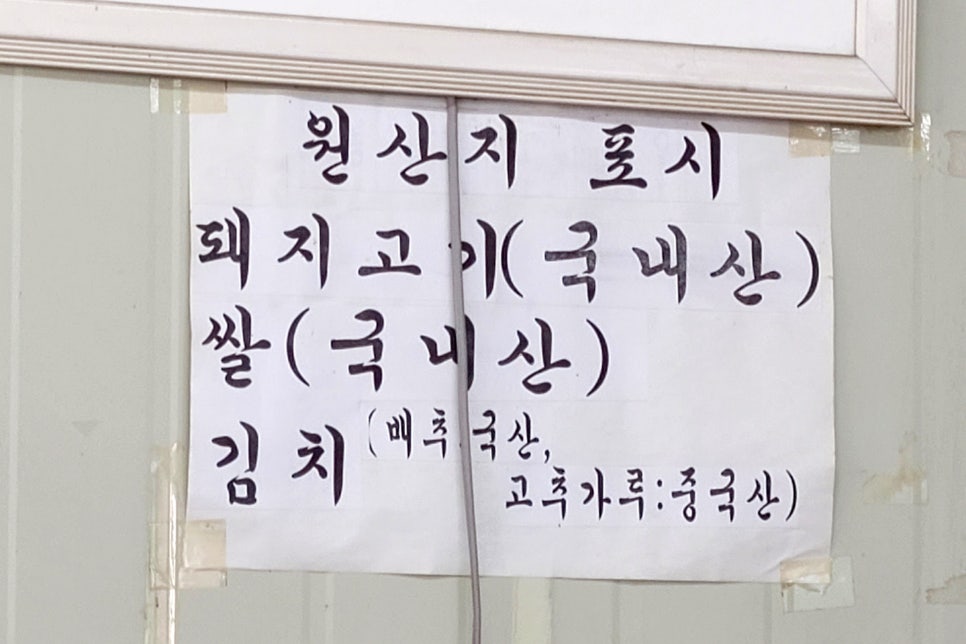 원산지 표시
돼지고기(국내산)
쌀(국내산)
김치(배추 국산,
고추가루:중국산)